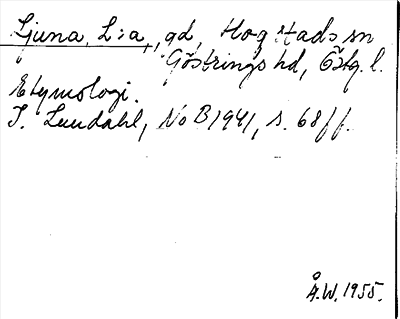 Ljuna, L:a, gd, Hogstads sn
Göstrings hd, Östg. l.
Etymologi.
I. Lundahl, NoB 1941, s. 68 ff.
Å.W. 1955.